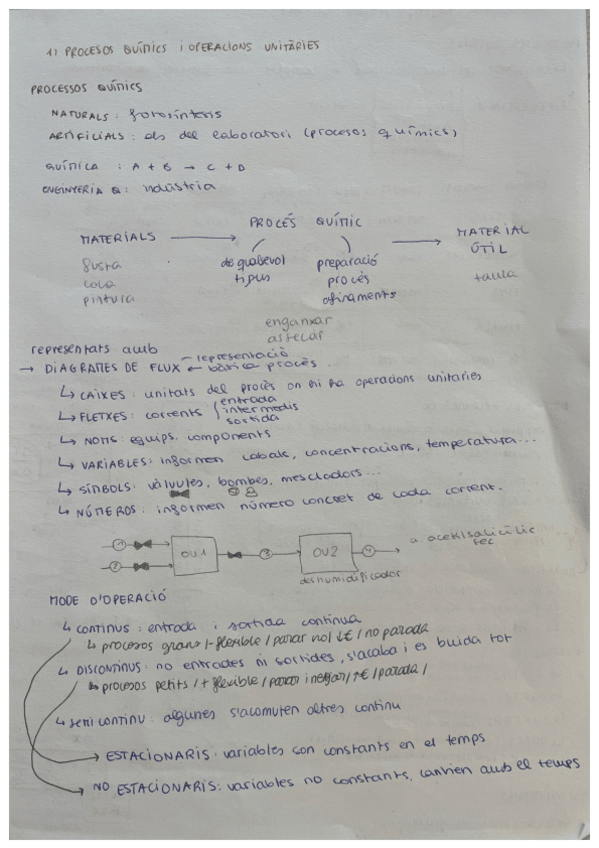 1) PROCESOS QUÍMICS I OPERACIONS UNITÀRIES
PROCESSOS QUÍMICS
NATURALS: fotosíntesis
ARTIFICIALS: els del laboratori (procesos químics)
QUÍMICA : A + B → C + D
ENGINYERIA Q: indústria
MATERIALS → PROCÉS QUÍMIC → MATERIAL ÚTIL
fusta
cola
pintura
de qualsevol tipus
preparació
procés
afinaments
taula
enganxar
representats amb
→ DIAGRAMES DE FLUX ← representació bàsica procés
↳ CAIXES: unitats del procés on hi ha operacions unitaries
↳ FLETXES: corrents { entrada intermedis sortida
↳ NOMS: equips, components
↳ VARIABLES: informen cabals, concentracions, temperatura...
↳ SÍMBOLS: vàlvules, bombes, mescladors...
↳ NÚMEROS: informen número concret de cada corrent.
1 OU1 3 OU2 4 → a acetilsalicílic sec
2
deshumidificador
MODE D'OPERACIÓ
↳ CONTINUS: entrada i sortida continua
↳ procesos grans / - flexible / parar no / / no parada
↳ DISCONTINUS: no entrades ni sortides, s'acaba i es buida tot
↳ procesos petits / + flexible / parar i netejar / / parada /
↳ semicontinu: algunes s'acomulen altres continu
→ ESTACIONARIS: variables son constants en el temps
→ NO ESTACIONARIS: variables no constants, canvien amb el temps